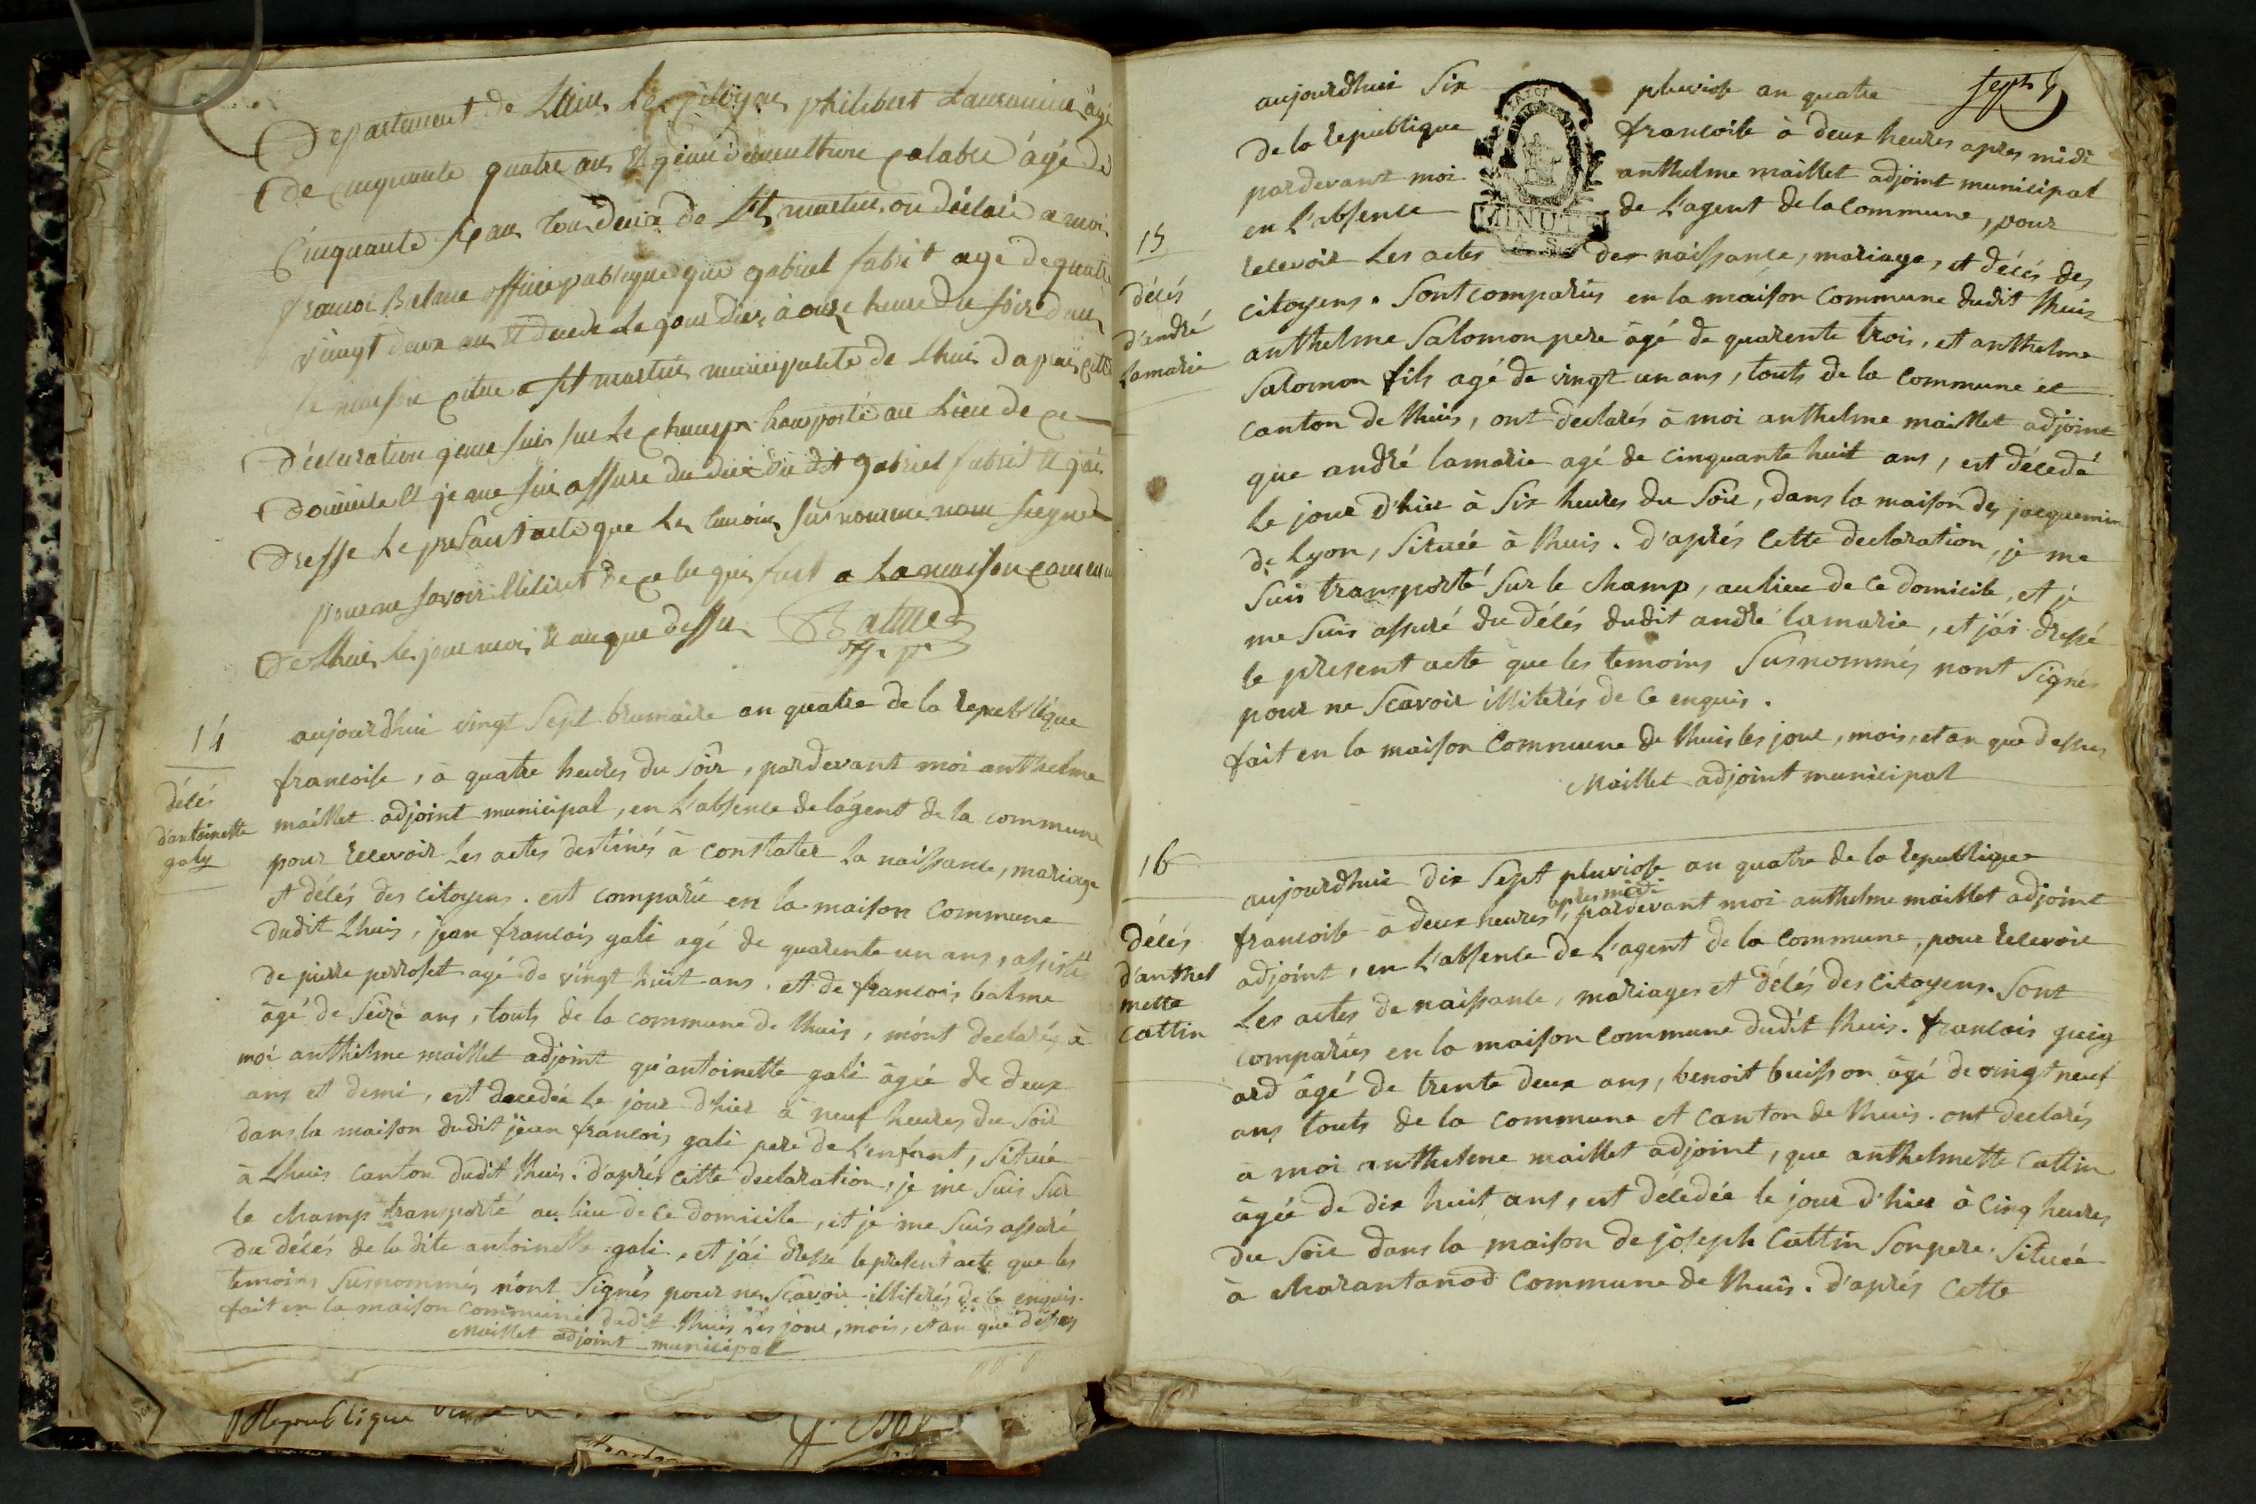 Departement de Lain les citoyens philibert age
de cinquante quatre ans et cultivateur age de
Cinquante six ans tou deux de St martin on déclaré a moi
francoi Balme officié publique que gabriel fabrit agé de quatre
vingt deux an et décédé le jour dier à onze heure du soir dans
sa maison citué a St martin municipalité de Lhuis dapres cette
déclaration je me suis sur le champ transporté au lieu de ce
domicile et je me sui assuré du décé du dit gabriel fabrit et j'ai
dressé le présant acte que les temoins surnommé nont signé
pour ne savoir de ce fait a la maison commune
de Lhuis les jour moi et an que dessu Balme
off. p.
14
décés
d'antoinette
galy
aujourdhui vingt sept brumaire an quatre de la republique
francoise, à quatre heures du soir, pardevant moi anthelme
maillet adjoint municipal, en l'absence de lagent de la commune
pour recevoir les actes destinés à constater la naissance, mariage
et décés des citoyens. est comparu en la maison commune
dudit Lhuis, jean francois gali agé de quarente un ans, assisté
de pierre perroset agé de vingt huit ans, et de francois balme
âgé de seize ans, touts de la commune de lhuis, m'ont declarés à
moi anthelme maillet adjoint qu'antoinette gali âgée de deux
ans et demi, est decedée le jour d'hier à neuf heures du soir
dans la maison dudit jean francois gali pere de l'enfant, située
à Lhuis canton dudit lhuis. d'aprés cette declaration, je me suis sur
le champ transporté au lieu de ce domicile, et je me suis assuré
du décés de la dite antoinette gali, et j'ai dressé le present acte que les
temoins susnommés n'ont signés pour ne scavoir illiterés de ce enquis.
fait en la maison commune dudit lhuis les jour, mois, et an que dessus
Maillet adjoint municipal
Republique
sept
aujourdhui six pluviose an quatre
de la republique francoise à deux heures apres midi
pardevant moi anthelme maillet adjoint municipal
en l'absence de l'agent de la commune, pour
MINUTE
15
décés
d'andré
lamarie
recevoir les actes des naissance, mariage, et décés des
citoyens. Sont comparus en la maison commune dudit lhuis
anthelme Salomon pere âgé de quarente trois, et anthelme
Salomon fils agé de vingt un ans, touts de la commune et
canton de lhuis, ont declarés à moi anthelme maillet adjoint
que andré lamarie agé de cinquante huit ans, est décedé
le jour d'hier à six heures du soir, dans la maison des jacquemin
de Lyon, située à lhuis. d'aprés cette declaration, je me
suis transporté sur le champ, au lieu de ce domicile, et je
me suis assuré du décés dudit andré lamarie, et j'ai dressé
le present acte que les temoins susnommés nont signés
pour ne scavoir illiterés de ce enquis.
fait en la maison commune de lhuis les jour, mois, et an que dessus
Maillet adjoint municipal
16
décés
d'anthel
mette
cattin
aujourdhui dix sept pluviose an quatre de la republique
francoise à deux heures apres midi, pardevant moi anthelme maillet adjoint
adjoint, en l'absence de l'agent de la commune, pour recevoir
les actes de naissance, mariages et décés des citoyens. Sont
comparus en la maison commune dudit lhuis. francois guig
ard âgé de trente deux ans, benoit buisson âgé de vingt neuf
ans touts de la commune et canton de lhuis. ont declarés
à moi anthelme maillet adjoint, que anthelmette Cattin
âgée de dix huit ans, est décedée le jour d'hier à cinq heures
du soir dans la maison de joseph Cattin son pere. située
à Marantanod commune de lhuis. d'aprés cette